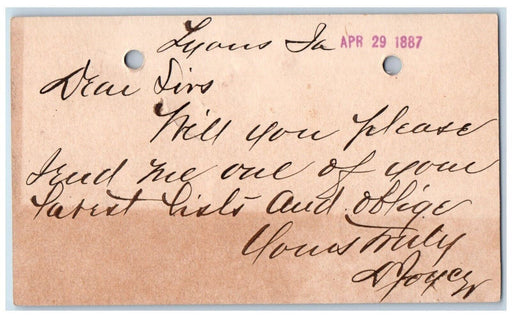 Lyons Ia APR 29 1887
Dear Sirs
Will you please
send me one of your
latest lists and oblige
Yours Truly
D Joyce